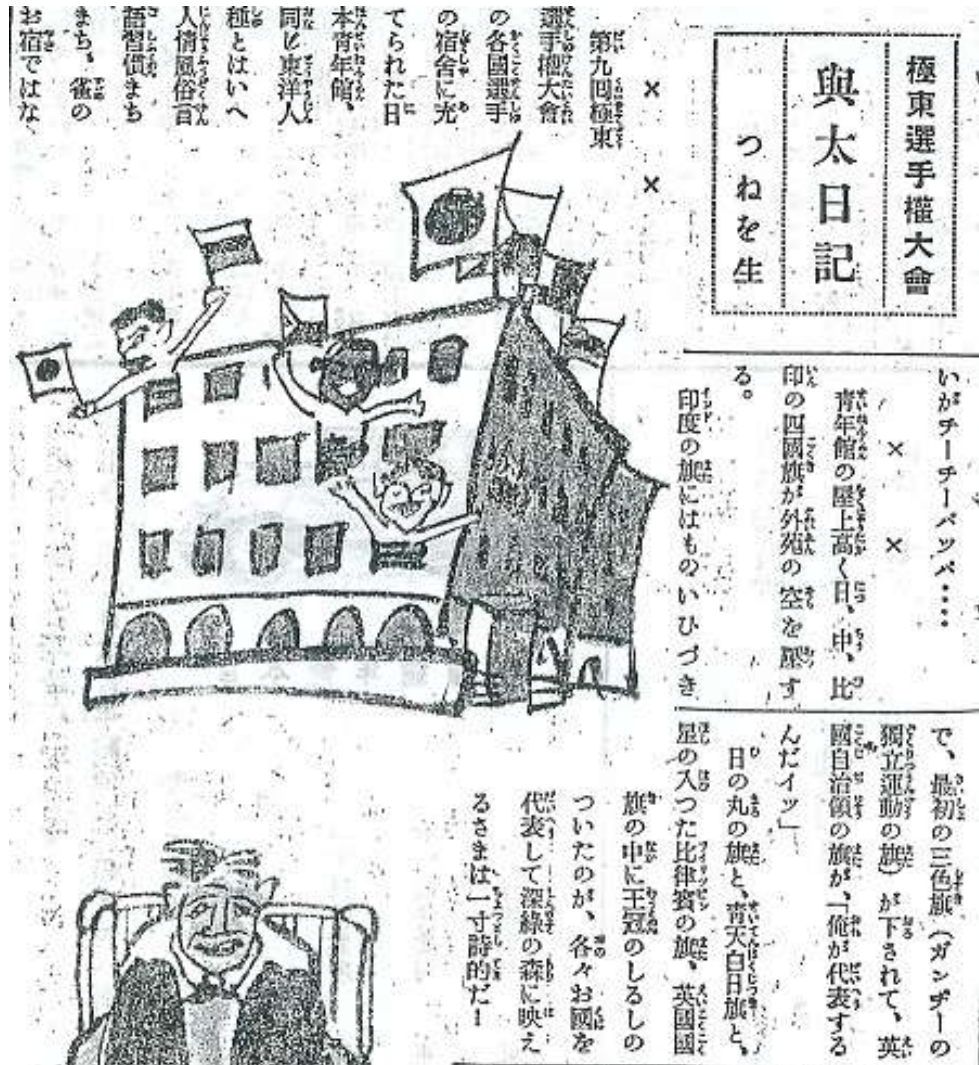 極東選手權大會
與太日記
つねを生
× ×
第九回極東
選手權大會
の各國選手
の宿舍に充
てられた日
本青年館、
同じ東洋人
種とはいへ
人情風俗言
語習慣まち
まち、雀の
お宿ではな
いがチーチーパッパ‥‥
× ×
青年館の屋上高く日、中、比
印の四國旗が外苑の空を壓す
る。
印度の旗にはものいひづき
で、最初の三色旗(ガンヂーの
獨立運動の旗)が下されて、英
國自治領の旗が、「俺が代表する
んだイッ」
日の丸の旗と、靑天白日旗と、
星の入つた比律賓の旗、英國國
旗の中に王冠のしるしの
ついたのが、各々お國を
代表して深綠の森に映え
るさまは一寸詩的だ!